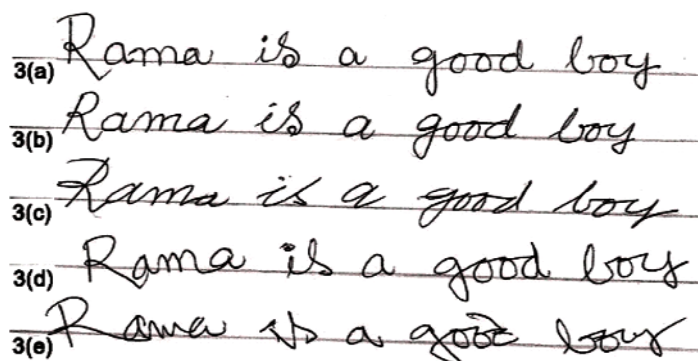 3(a) Rama is a good boy
3(b) Rama is a good boy
3(c) Rama is a good boy
3(d) Rama is a good boy
3(e) Rama is a good boy